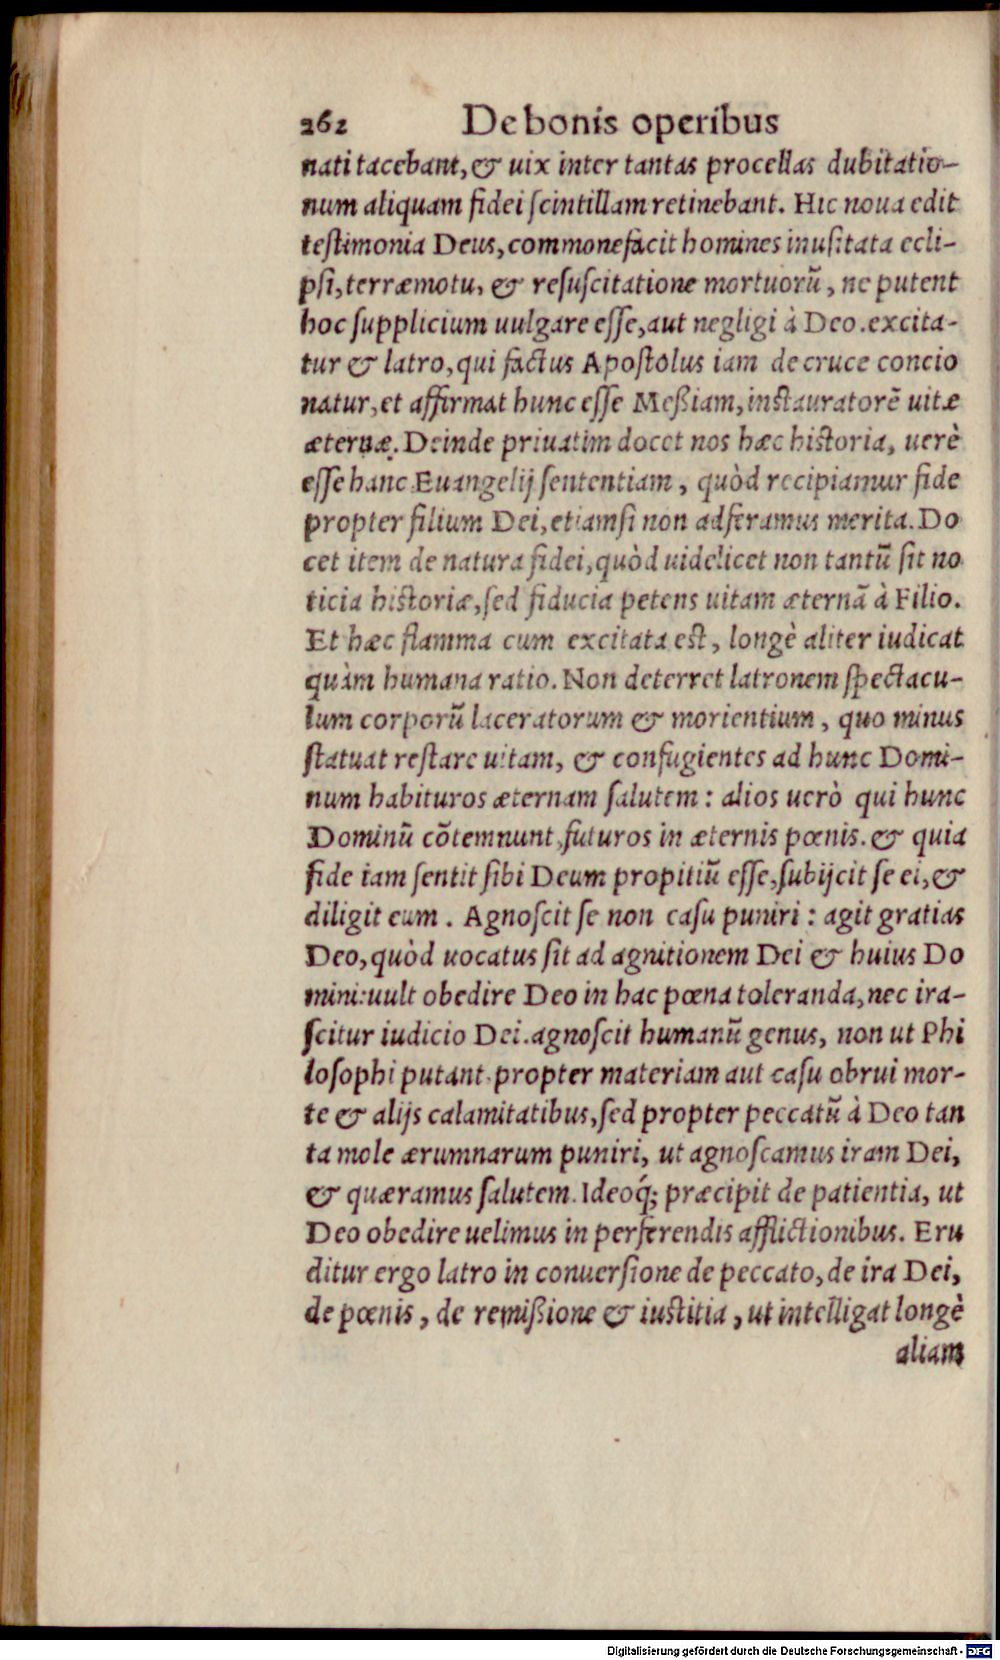 262 De bonis operibus
nati tacebant, & uix inter tantas procellas dubitatio-
num aliquam fidei ſcintillam retinebant. Hic noua edit
teſtimonia Deus, commonefacit homines inuſitata ecli-
pſi, terræmotu, & reſuſcitatione mortuorũ, ne putent
hoc ſupplicium uulgare eſſe, aut negligi à Deo. excita-
tur & latro, qui factus Apoſtolus iam de cruce concio
natur, et affirmat hunc eſſe Meßiam, inſtauratorẽ uitæ
æternæ. Deinde priuatim docet nos hæc hiſtoria, uerè
eſſe hanc Euangelij ſententiam, quòd recipiamur fide
propter filium Dei, etiamſi non adferamus merita. Do
cet item de natura fidei, quòd uidelicet non tantũ ſit no
ticia hiſtoriæ, ſed fiducia petens uitam æternã à Filio.
Et hæc flamma cum excitata eſt, longè aliter iudicat
quàm humana ratio. Non deterret latronem ſpectacu-
lum corporũ laceratorum & morientium, quo minus
ſtatuat reſtare uitam, & confugientes ad hunc Domi-
num habituros æternam ſalutem: alios uerò qui hunc
Dominũ cõtemnunt, futuros in æternis pœnis. & quia
fide iam ſentit ſibi Deum propitiũ eſſe, ſubijcit ſe ei, &
diligit eum. Agnoſcit ſe non caſu puniri: agit gratias
Deo, quòd uocatus ſit ad agnitionem Dei & huius Do
mini: uult obedire Deo in hac pœna toleranda, nec ira-
ſcitur iudicio Dei. agnoſcit humanũ genus, non ut Phi
loſophi putant propter materiam aut caſu obrui mor-
te & alijs calamitatibus, ſed propter peccatũ à Deo tan
ta mole ærumnarum puniri, ut agnoſcamus iram Dei,
& quæramus ſalutem. Ideoq́; præcipit de patientia, ut
Deo obedire uelimus in perferendis afflictionibus. Eru
ditur ergo latro in conuerſione de peccato, de ira Dei,
de pœnis, de remißione & iuſtitia, ut intelligat longè
aliam
Digitalisierung gefördert durch die Deutsche Forschungsgemeinschaft - DFG